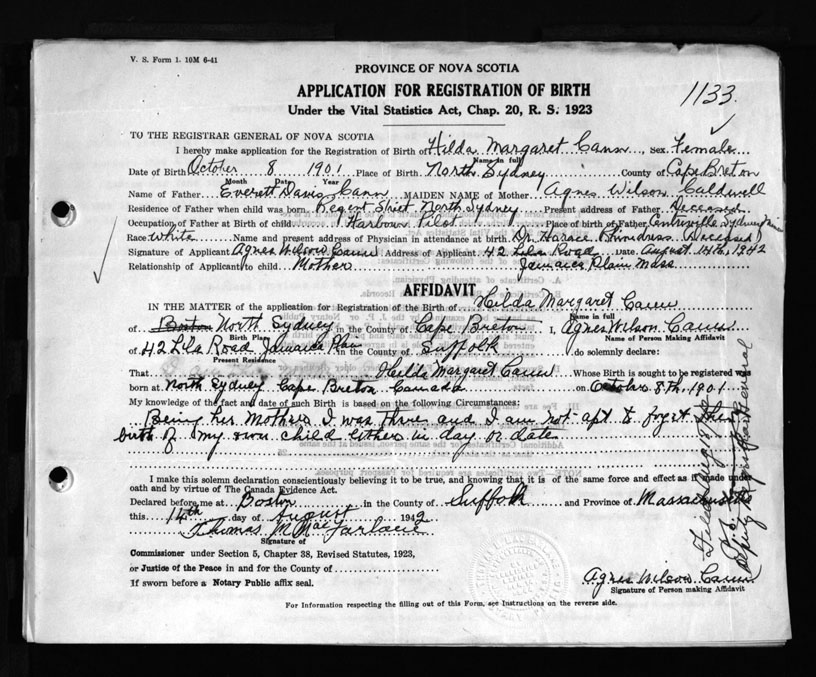 V. S. Form 1. 10M 6-41
PROVINCE OF NOVA SCOTIA
APPLICATION FOR REGISTRATION OF BIRTH
1133.
Under the Vital Statistics Act, Chap. 20, R. S. 1923
TO THE REGISTRAR GENERAL OF NOVA SCOTIA
I hereby make application for the Registration of Birth of Hilda Margaret Cann, Sex Female
Name in full
Date of Birth October 8 1901 Place of Birth North Sydney County of Cape Breton
Month Date Year
Name of Father Everett Davis Cann MAIDEN NAME of Mother Agnes Wilson Caldwell
Residence of Father when child was born Regent Street North Sydney Present address of Father Deceased
Occupation of Father at Birth of child Harbour Pilot Place of birth of Father Centreville Sydney Mines
Race White Name and present address of Physician in attendance at birth Dr. Horace Deceased
Signature of Applicant Agnes Wilson Cann Address of Applicant 42 Lila Road Date August 14th 1942
Relationship of Applicant to child Mother Jamaica Plain Mass
AFFIDAVIT
IN THE MATTER of the application for Registration of the Birth of Hilda Margaret Cann
Name in full
of Boston North Sydney in the County of Cape Breton I, Agnes Wilson Cann
Birth Place Name of Person Making Affidavit
of 42 Lila Road Jamaica Plain in the County of Suffolk do solemnly declare:
Present Residence
That Hilda Margaret Cann Whose Birth is sought to be registered was
born at North Sydney Cape Breton Canada on October 8th. 1901
My knowledge of the fact and date of such Birth is based on the following Circumstances:
Being her Mother I was there and I am not apt to forget the
birth of my own child either in day or date
I make this solemn declaration conscientiously believing it to be true, and knowing that it is of the same force and effect as if made under
oath and by virtue of The Canada Evidence Act.
Declared before me at Boston in the County of Suffolk and Province of Massachusetts
this 14th day of August 1942
Thomas M MacFarlane
Signature of
Commissioner under Section 5, Chapter 38, Revised Statutes, 1923,
or Justice of the Peace in and for the County of
If sworn before a Notary Public affix seal.
Agnes Wilson Cann
Signature of Person making Affidavit
For Information respecting the filling out of this Form, see Instructions on the reverse side.